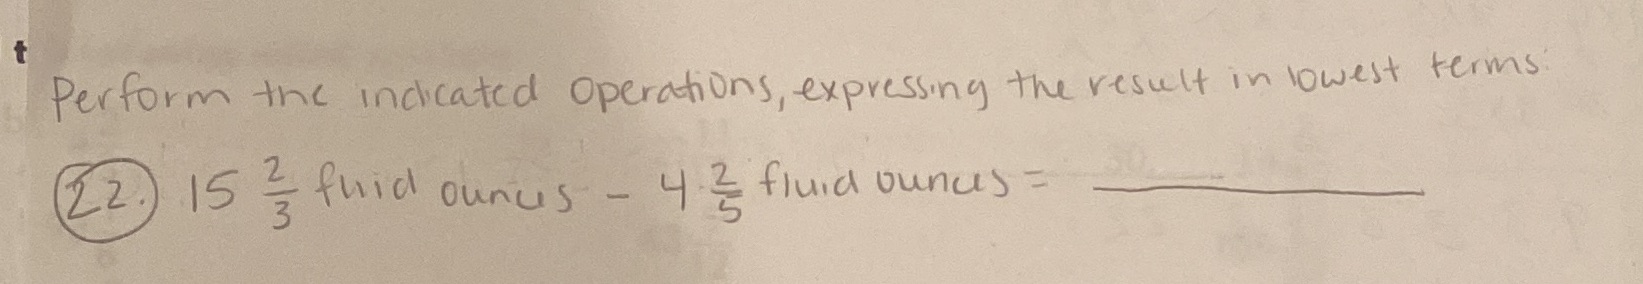 t
Perform the indicated operations, expressing the result in lowest terms:
22. 15 2/3 fluid ounces - 4 2/5 fluid ounces = ________